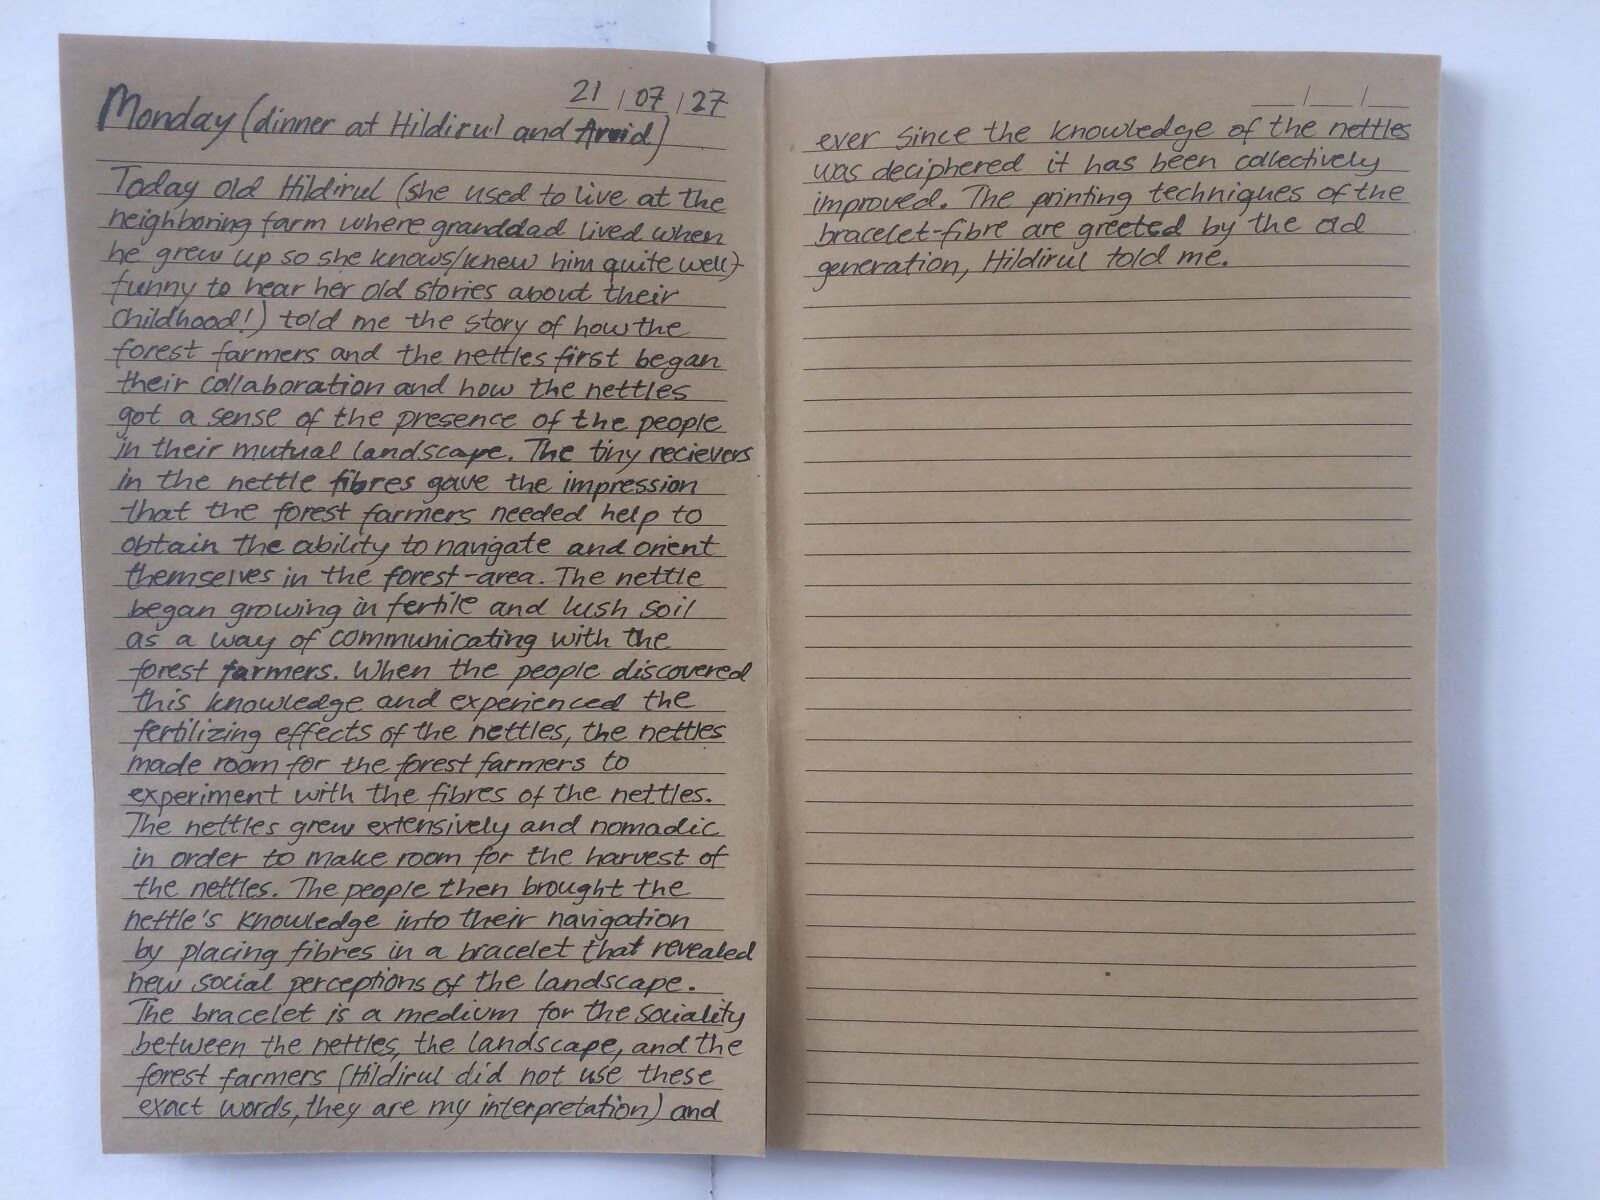 21/07/27
Monday (dinner at Hildirul and Arvid)
Today old Hildirul (she used to live at the
neighboring farm where granddad lived when
he grew up so she knows/knew him quite well)
funny to hear her old stories about their
childhood!) told me the story of how the
forest farmers and the nettles first began
their collaboration and how the nettles
got a sense of the presence of the people
in their mutual landscape. The tiny recievers
in the nettle fibres gave the impression
that the forest farmers needed help to
obtain the ability to navigate and orient
themselves in the forest-area. The nettle
began growing in fertile and lush soil
as a way of communicating with the
forest farmers. When the people discovered
this knowledge and experienced the
fertilizing effects of the nettles, the nettles
made room for the forest farmers to
experiment with the fibres of the nettles.
The nettles grew extensively and nomadic
in order to make room for the harvest of
the nettles. The people then brought the
nettle's knowledge into their navigation
by placing fibres in a bracelet that revealed
new social perceptions of the landscape.
The bracelet is a medium for the sociality
between the nettles, the landscape, and the
forest farmers (Hildirul did not use these
exact words, they are my interpretation) and
ever since the knowledge of the nettles
was deciphered it has been collectively
improved. The printing techniques of the
bracelet-fibre are greeted by the old
generation, Hildirul told me.